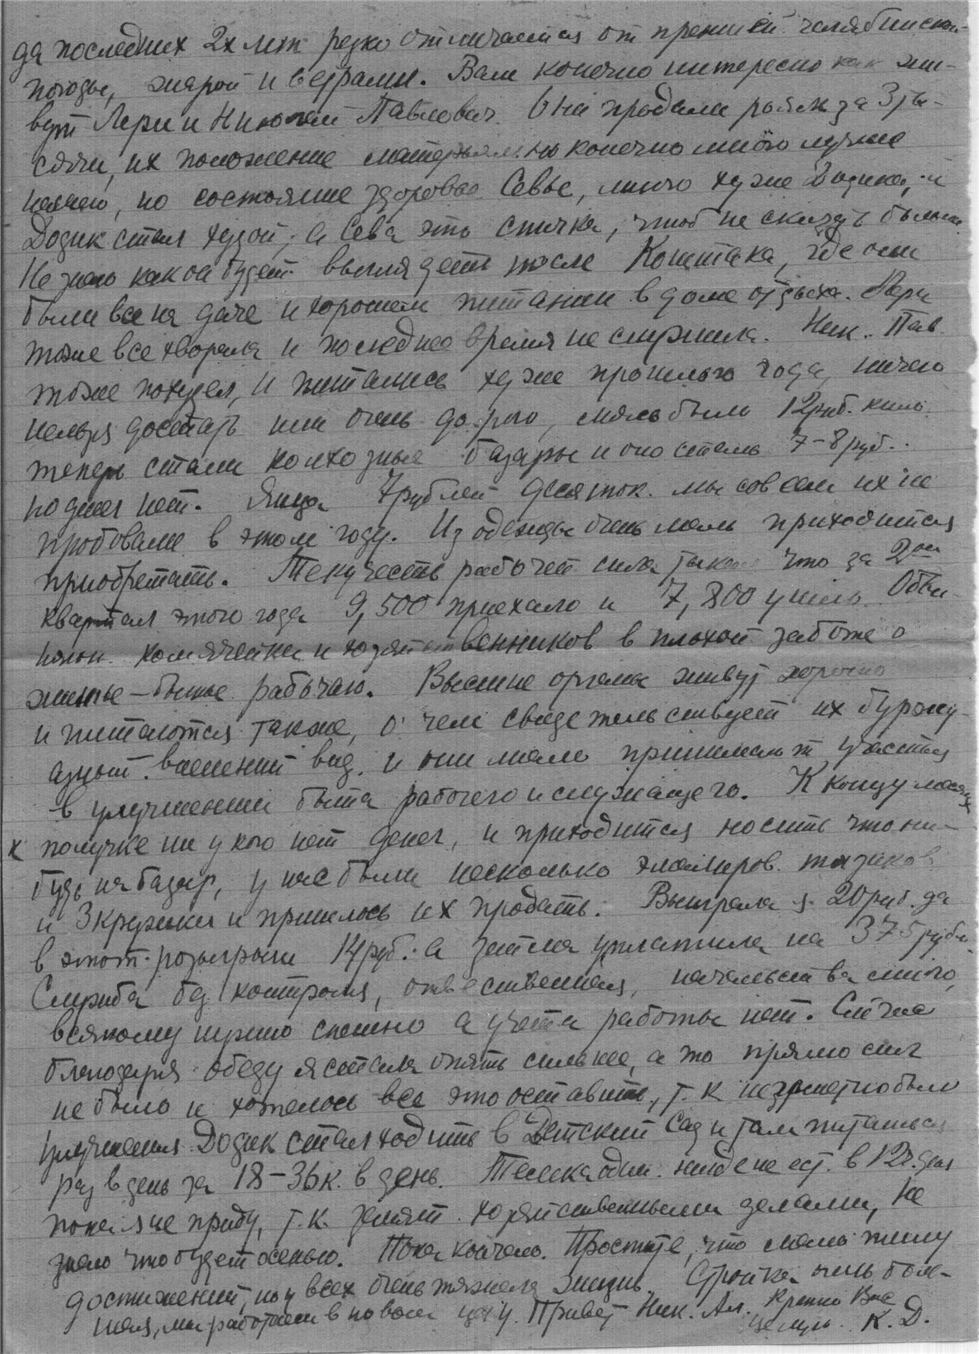 да последних 2х лет резко отличается от прежней челябинской
погоды, жарой и ветрами. Вам конечно интересно как жи-
вут Лери и Николай Павлович. Они продали рояль за 3 ты-
сячи, их положение материально конечно много лучше
нашего, но состояние здоровье Севы, много хуже Додика, и
Додик стал худой, а Сева это спичка, чтоб не сказать больше.
Не знаю какой будет выглядеть после Каштака, где они
были все на даче и хорошем питании в доме отдыха. Лери
тоже все хворала и последнее время не служила. Ник. Пав.
тоже похудел, и питались хуже прошлого года, ничего
нельзя достать или очень дорого, масло было 12 руб. кило.
теперь стали колхозные базары и оно стало 7-8 руб.
но денег нет. Яица 7 рублей десяток. мы совсем их не
пробовали в этом году. Из одежды очень мало приходится
приобретать. Текучесть рабочей силы такая что за 2ой
квартал этого года 9,500 приехало и 7,800 ушло. Обви-
хозяйственников в плохой заботе о
жилье-бытье рабочего. Высшие органы живут хорошо
и питаются также, о чем свидетельствует их буржу-
азный внешний вид. и они мало принимают участия
в улучшении быта рабочего и служащего. К концу месяца
к получке ни у кого нет денег, и приходится носить что ни-
будь на базар, у нас были несколько эмалиров. тазиков
и 3 кружки и пришлось их продать. Выиграла я 20 руб. да
в этот розыгрыш 14 руб. а займа уплатила на 375 рубл.
Служба без контроля, ответственная, начальства много,
всякому нужно спешно а учета работы нет. Сейчас
благодаря обеду я стала опять сильнее, а то прямо сил
не было и хотелось все это оставить, т.к. незаметно было
улучшения. Додик стал ходить в Детский Сад и там питаться
раз в день за 18-36 к. в день. нигде не ест. в 12 дня
пока я не приду, т.к. занят хозяйственными делами, Не
знаю что будет осенью. Пока кончаю. Простите, что мало пишу
достижений, но у всех очень тяжела жизнь. Стройка очень боль-
шая, мы работаем в новом цеху. Привет Ник. Ал. Крепко Вас
целую. К. Д.